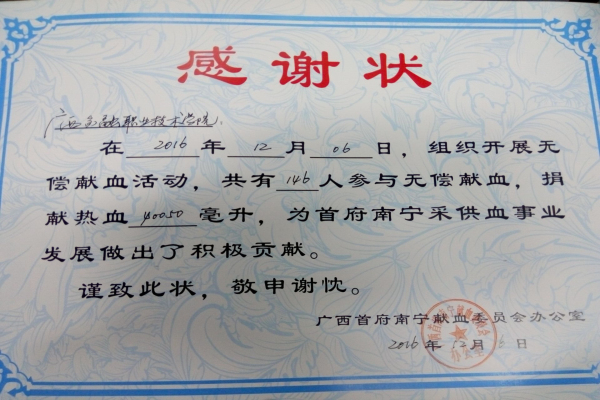 感谢状
广西金融职业技术学院：
在 2016 年 12 月 06 日，组织开展无
偿献血活动，共有 146 人参与无偿献血，捐
献热血 40050 毫升，为首府南宁采供血事业
发展做出了积极贡献。
谨致此状，敬申谢忱。
广西首府南宁献血委员会办公室
2016 年 12 月 6 日